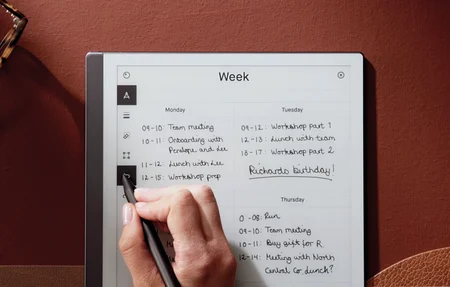 Week
Monday
09-10: Team meeting
10-11: Onboarding with
Penelope and Lee
11-12: Lunch with Lee
12-15: Workshop prep
Tuesday
09-12: Workshop part 1
12-13: Lunch with team
13-17: Workshop part 2
Richards birthday!
Thursday
-08: Run
09-10: Team meeting
10-11: Buy gift for R.
12-14: Meeting with North
Central Co. Lunch?